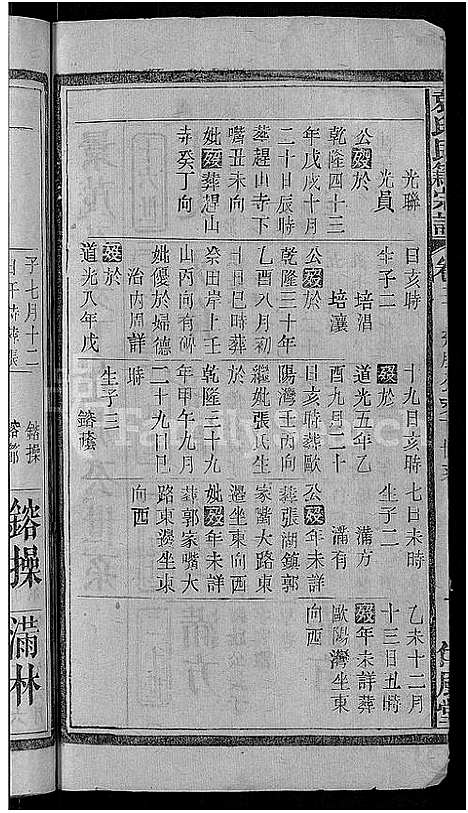 氏續宗譜
卷
光聯
光員
公歿於
乾隆四十三
年戊戌十月
二十日辰時
葬趕山寺下
嘴丑未向
妣歿葬趕山
寺癸丁向
日亥時
生子二
培淐
培瀼
公歿於
乾隆三十年
乙酉八月初
七日巳時葬
祭田岸上王
山丙向有碑
妣優於婦德
治內周詳
歿於
道光八年戊
十九日亥時
歿於
道光五年乙
酉九月二十
日亥時葬歐
陽灣壬丙向
繼妣張氏生
於
乾隆三十九
年甲午九月
二十九日巳
時
生子三
鎔蔭
七日未時
生子二
滿方
滿有
公歿年未詳
葬張湖鎮郭
家嘴大路東
邊坐東向西
妣歿年未詳
葬郭家嘴大
路東邊坐東
向西
乙未十二月
十三日丑時
歿年未詳葬
歐陽灣坐東
向西
子七月十二
鎔操
鎔操
滿林
FamilySearch